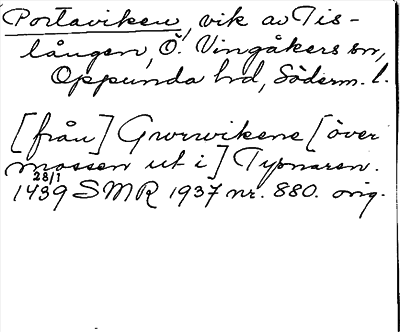 Portaviken, vik av Tis-
lången, Ö. Vingåkers sn,
Oppunda hd, Söderm. l.
[från] Gworwikene [över
mossen ut i] Typnaren.
28/1
1439 SMR 1937 nr. 880. orig.